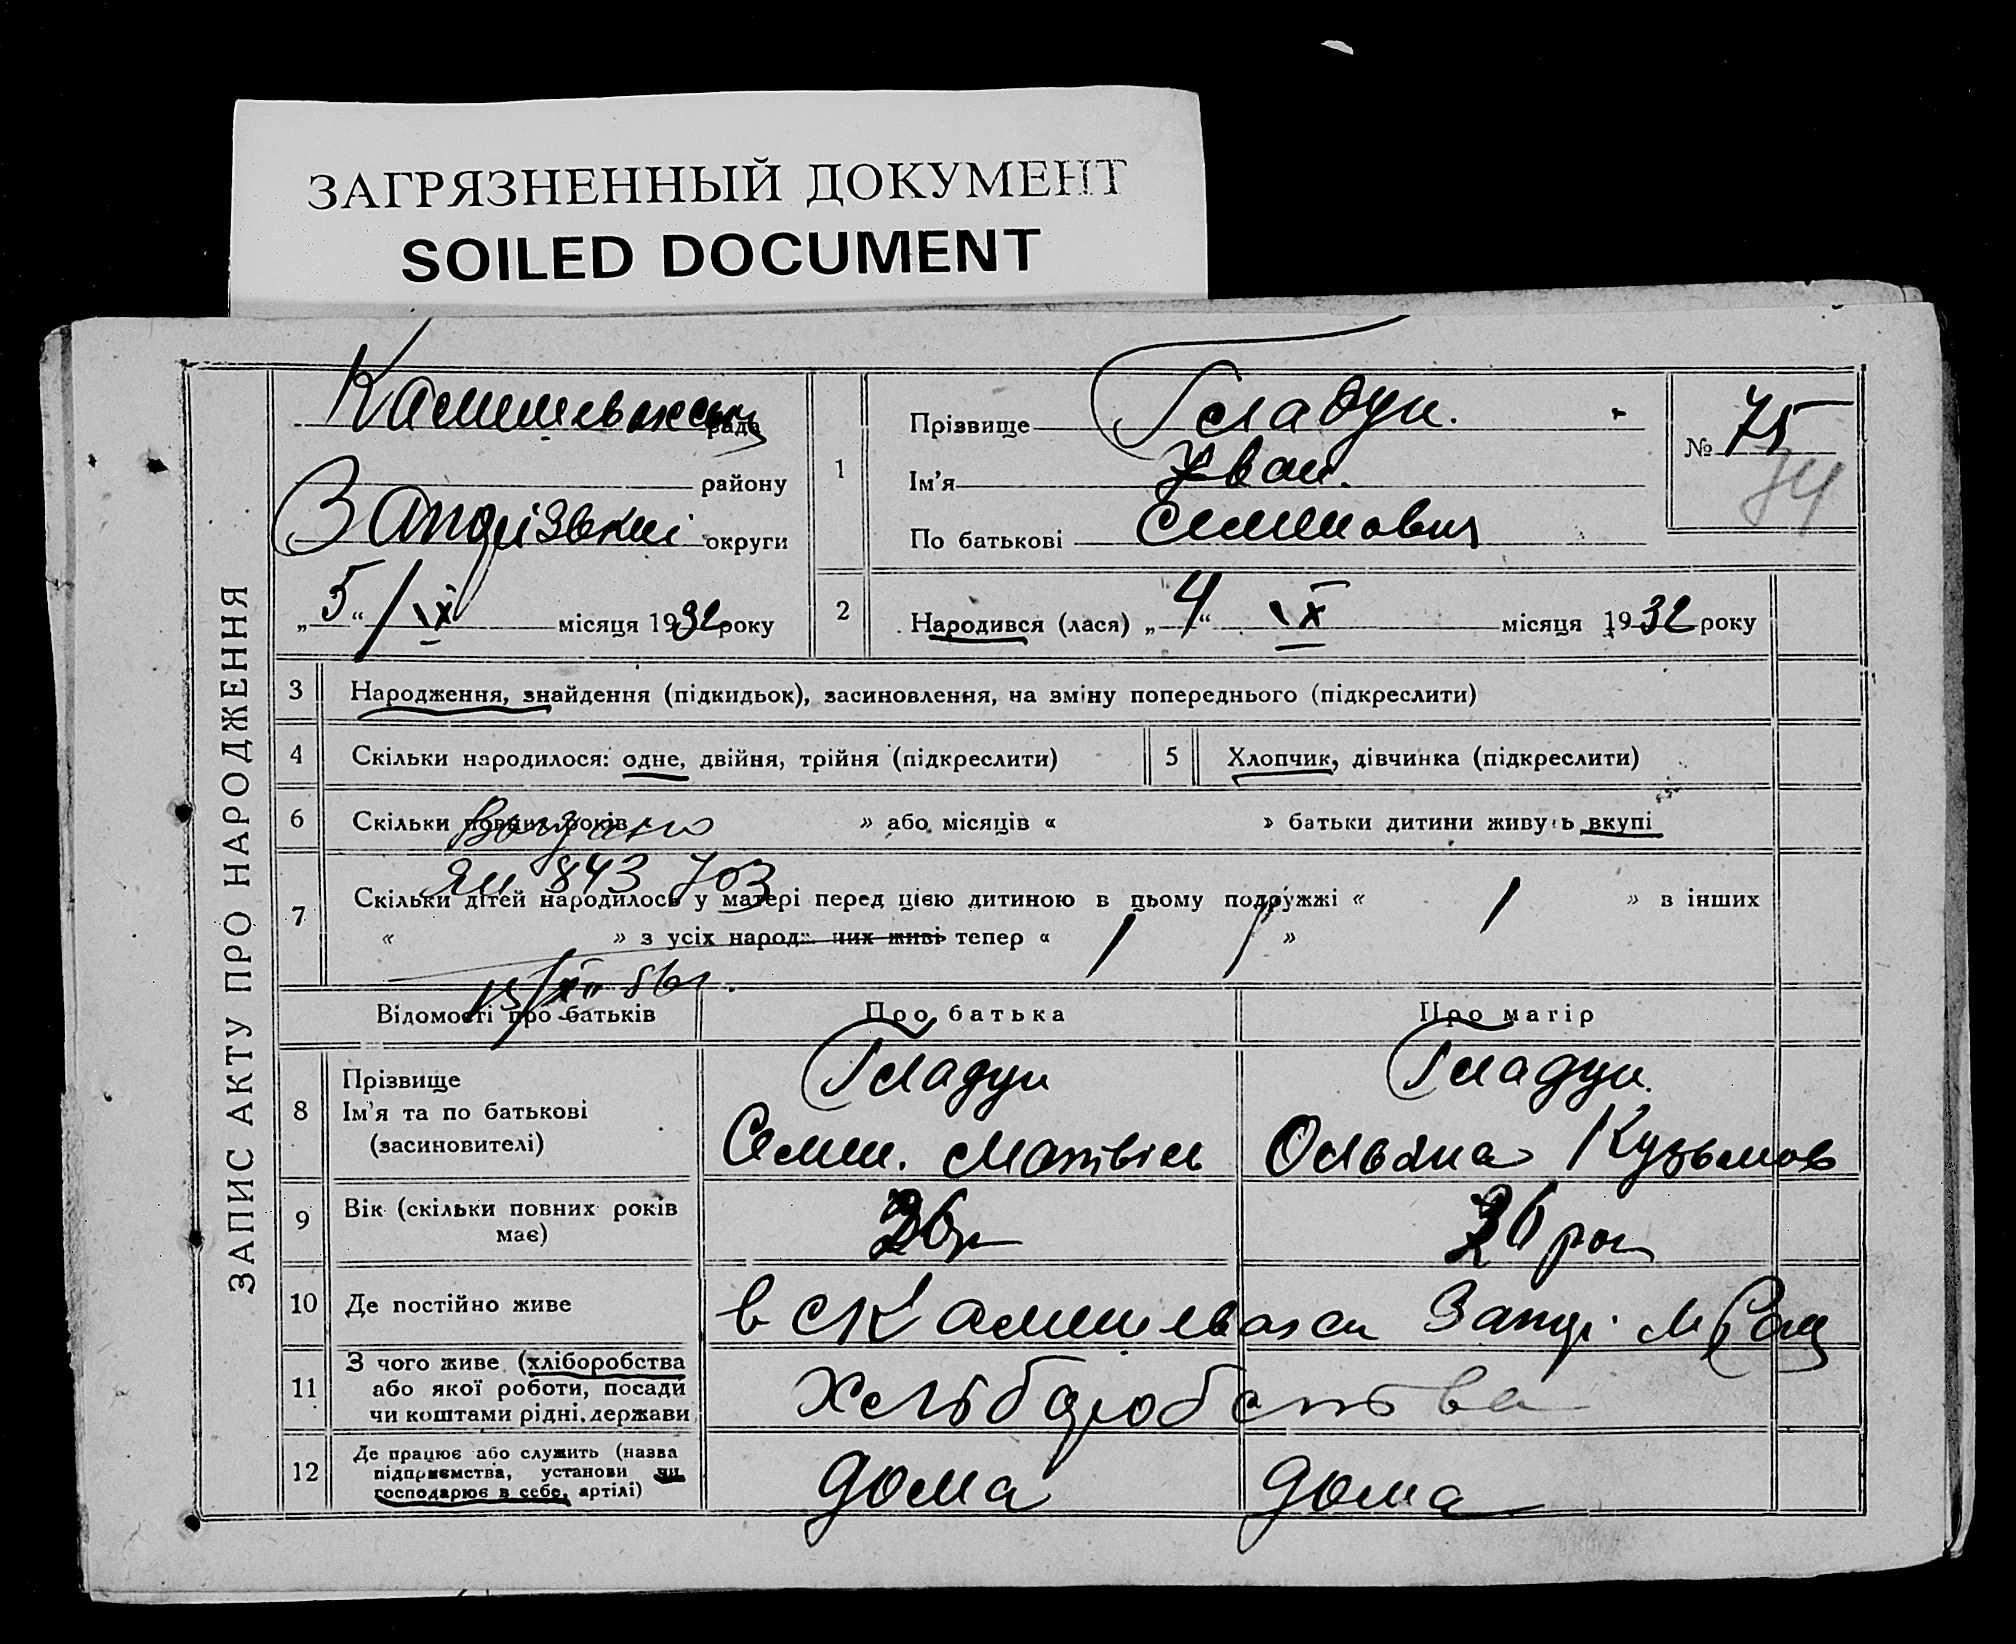 ЗАГРЯЗНЕННЫЙ ДОКУМЕНТ
SOILED DOCUMENT
ЗАПИС АКТУ ПРО НАРОДЖЕННЯ
рада
району
округи
„5“ IX місяця 1932 року
1 Прізвище Гладун.
Ім'я Іван.
По батькові Семенович
№ 75
74
2 Народився (лася) „4“ IX місяця 1932 року
3 Народження, знайдення (підкидьок), засиновлення, на зміну попереднього (підкреслити)
4 Скільки народилося: одне, двійня, трійня (підкреслити)
5 Хлопчик, дівчинка (підкреслити)
6 Скільки повних років « » або місяців « » батьки дитини живуть вкупі
843 703
7 Скільки дітей народилось у матері перед цією дитиною в цьому подружжі « 1 » в інших
« » з усіх народжених живі тепер « 1 »
Відомості про батьків
Про батька
Про матір
8 Прізвище
Ім'я та по батькові
(засиновителі)
Гладун
Гладун.
Семен. Матвієв
Кузьмов
9 Вік (скільки повних років має)
26 р
26 рок
10 Де постійно живе
11 З чого живе (хліборобства
або якої роботи, посади
чи коштами рідні, держави
Хліборобства
12 Де працює або служить (назва
підприємства, установи чи
господарює в себе, артілі)
дома
дома